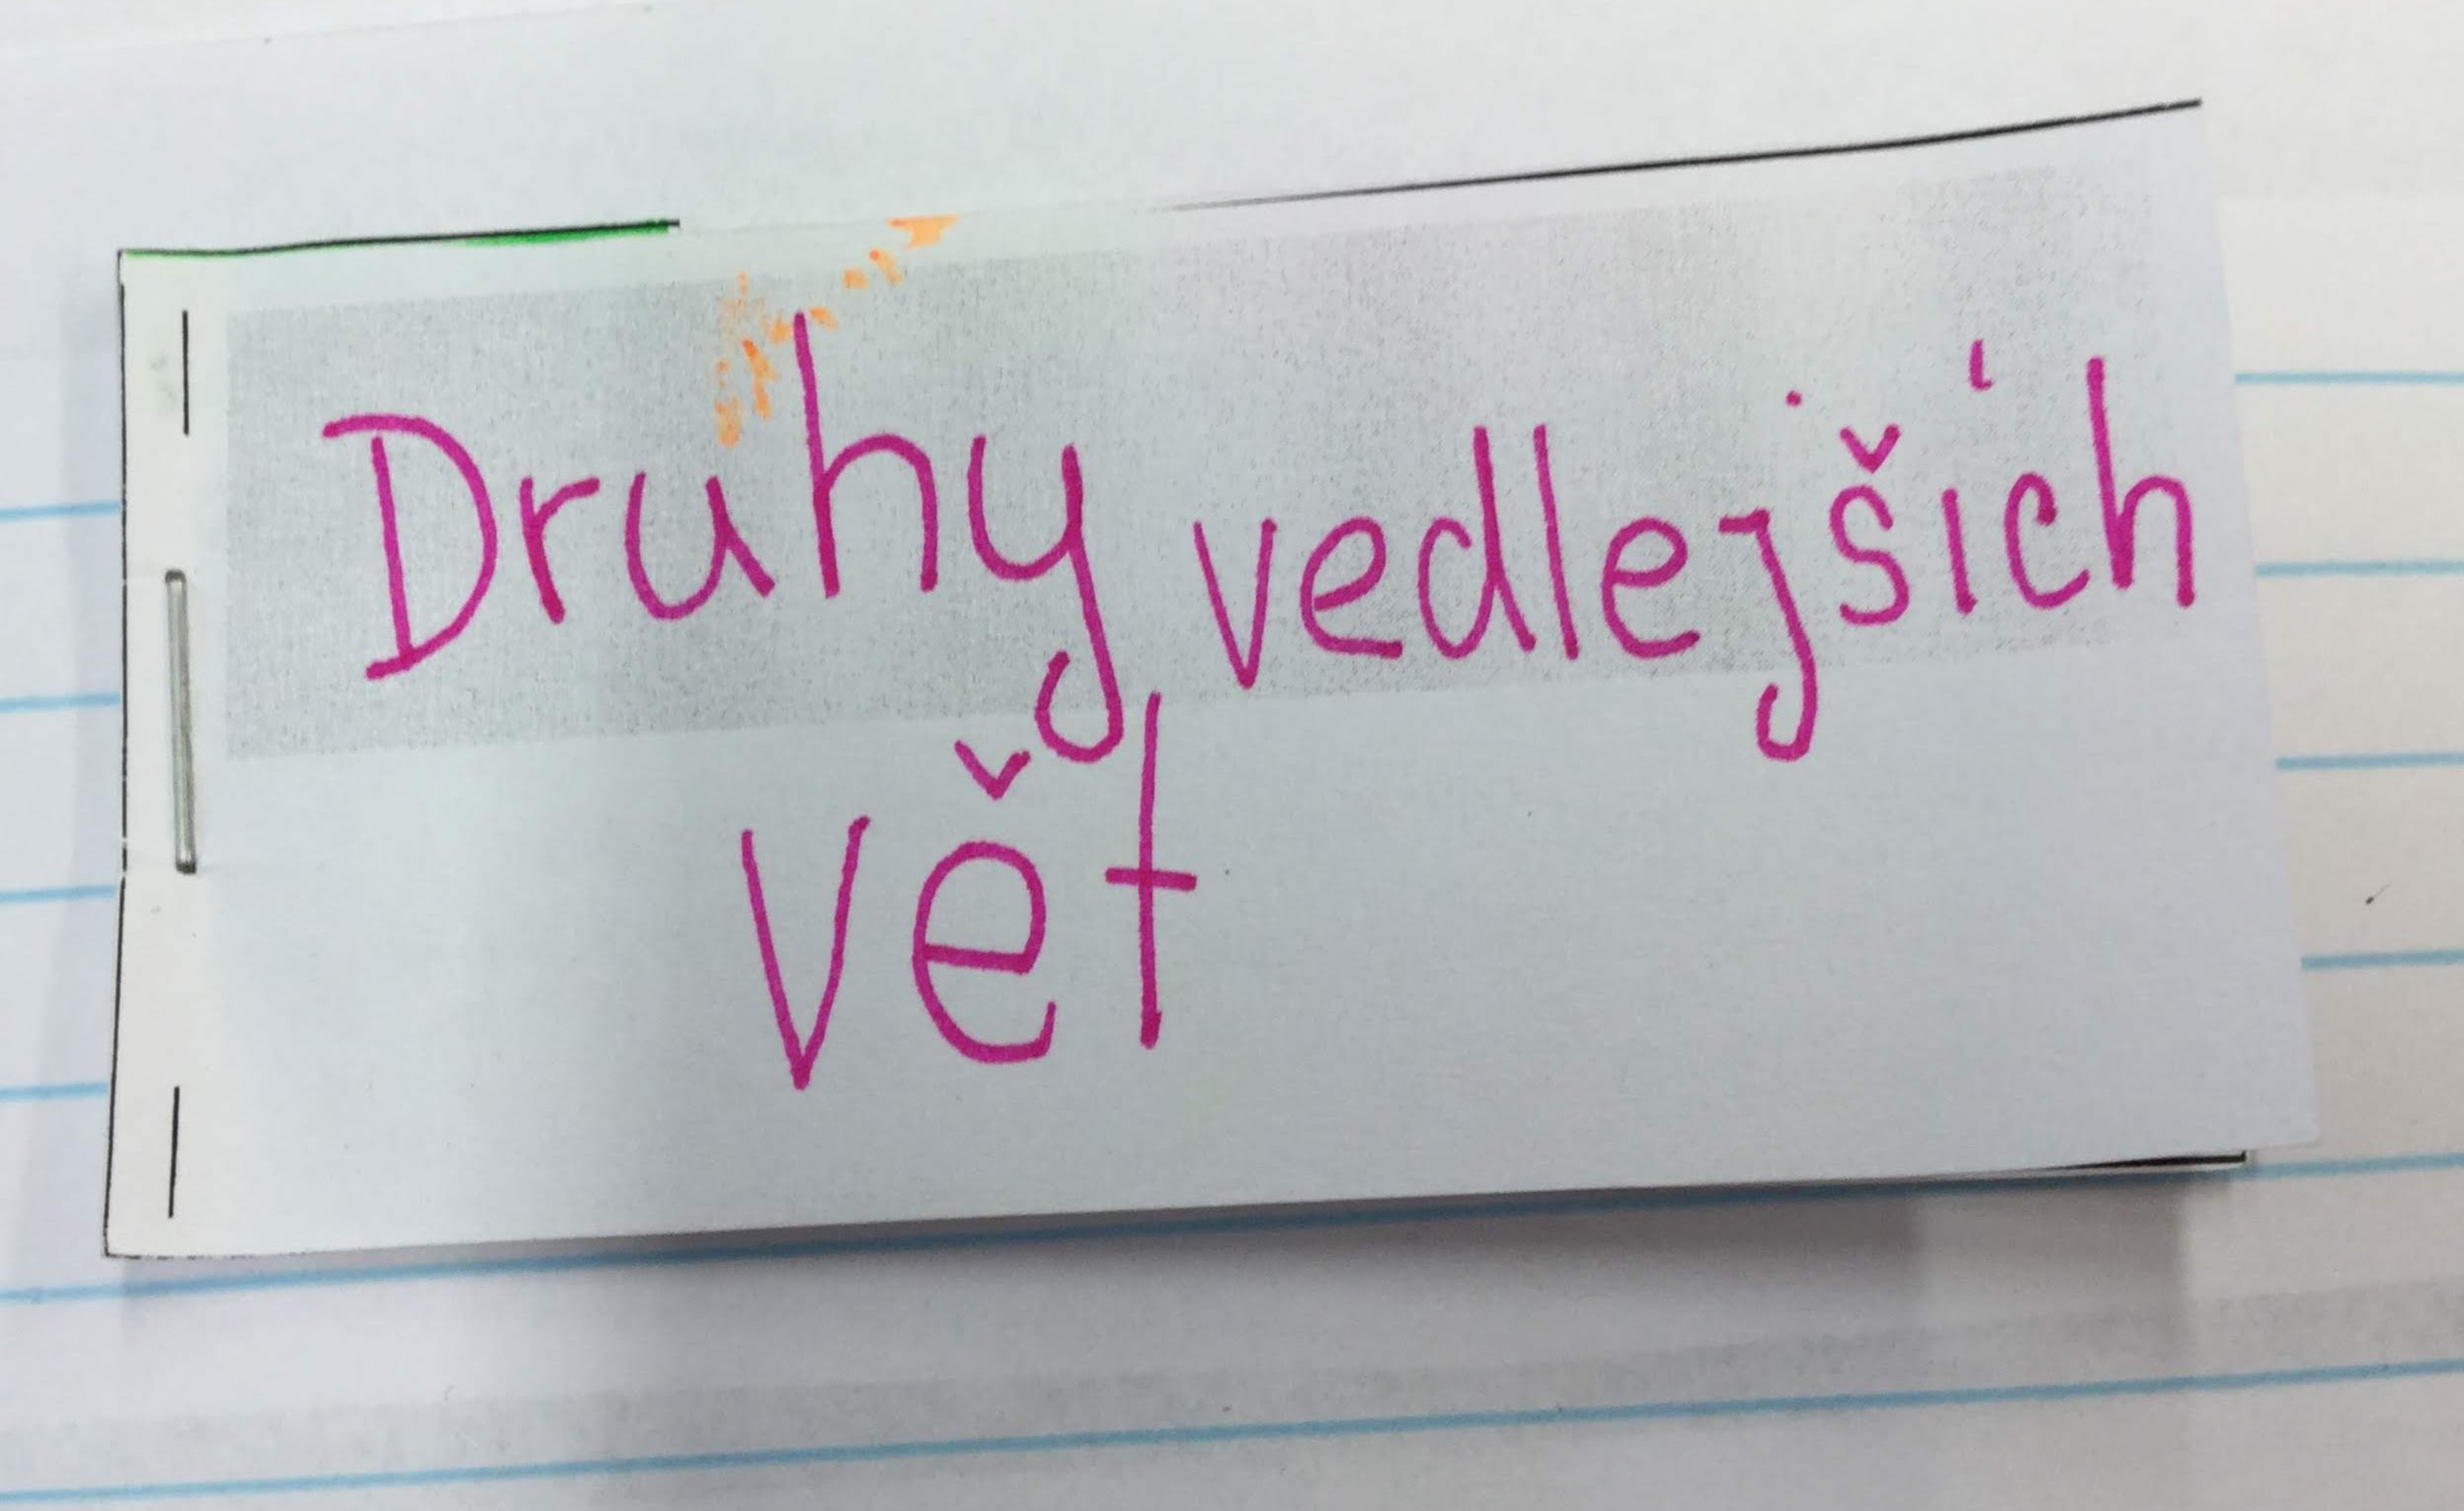 Druhy vedlejších
vět